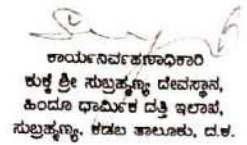 ಕಾರ್ಯನಿರ್ವಹಣಾಧಿಕಾರಿ
ಕುಕ್ಕೆ ಶ್ರೀ ಸುಬ್ರಹ್ಮಣ್ಯ ದೇವಸ್ಥಾನ,
ಹಿಂದೂ ಧಾರ್ಮಿಕ ದತ್ತಿ ಇಲಾಖೆ,
ಸುಬ್ರಹ್ಮಣ್ಯ, ಕಡಬ ತಾಲೂಕು, ದ.ಕ.